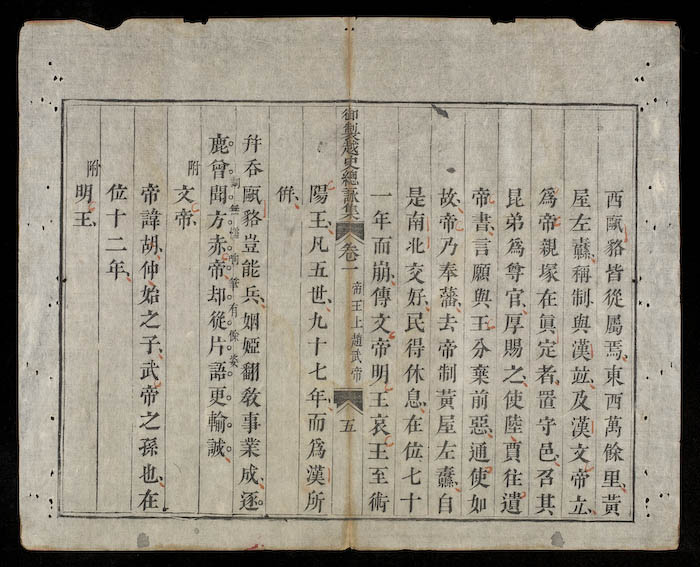 西甌駱皆從屬焉東西萬餘里黃
屋左纛稱制與漢竝及漢文帝立
爲帝親塚在眞定者置守邑召其
昆弟爲尊官厚賜之使陸賈往遺
帝書言願與王分棄前惡通使如
故帝乃奉藩去帝制黃屋左纛自
是南北交好民得休息在位七十
一年而崩傳文帝明王哀王至術
御製越史總詠集 卷一 帝王上趙武帝 五
陽王凡五世九十七年而爲漢所
併
幷吞甌駱豈能兵姻婭翻敎事業成逐
鹿曾聞方赤帝却從片語更輸誠
無 筆有餘姿
附 文帝
帝諱胡仲始之子武帝之孫也在
位十二年
附 明王